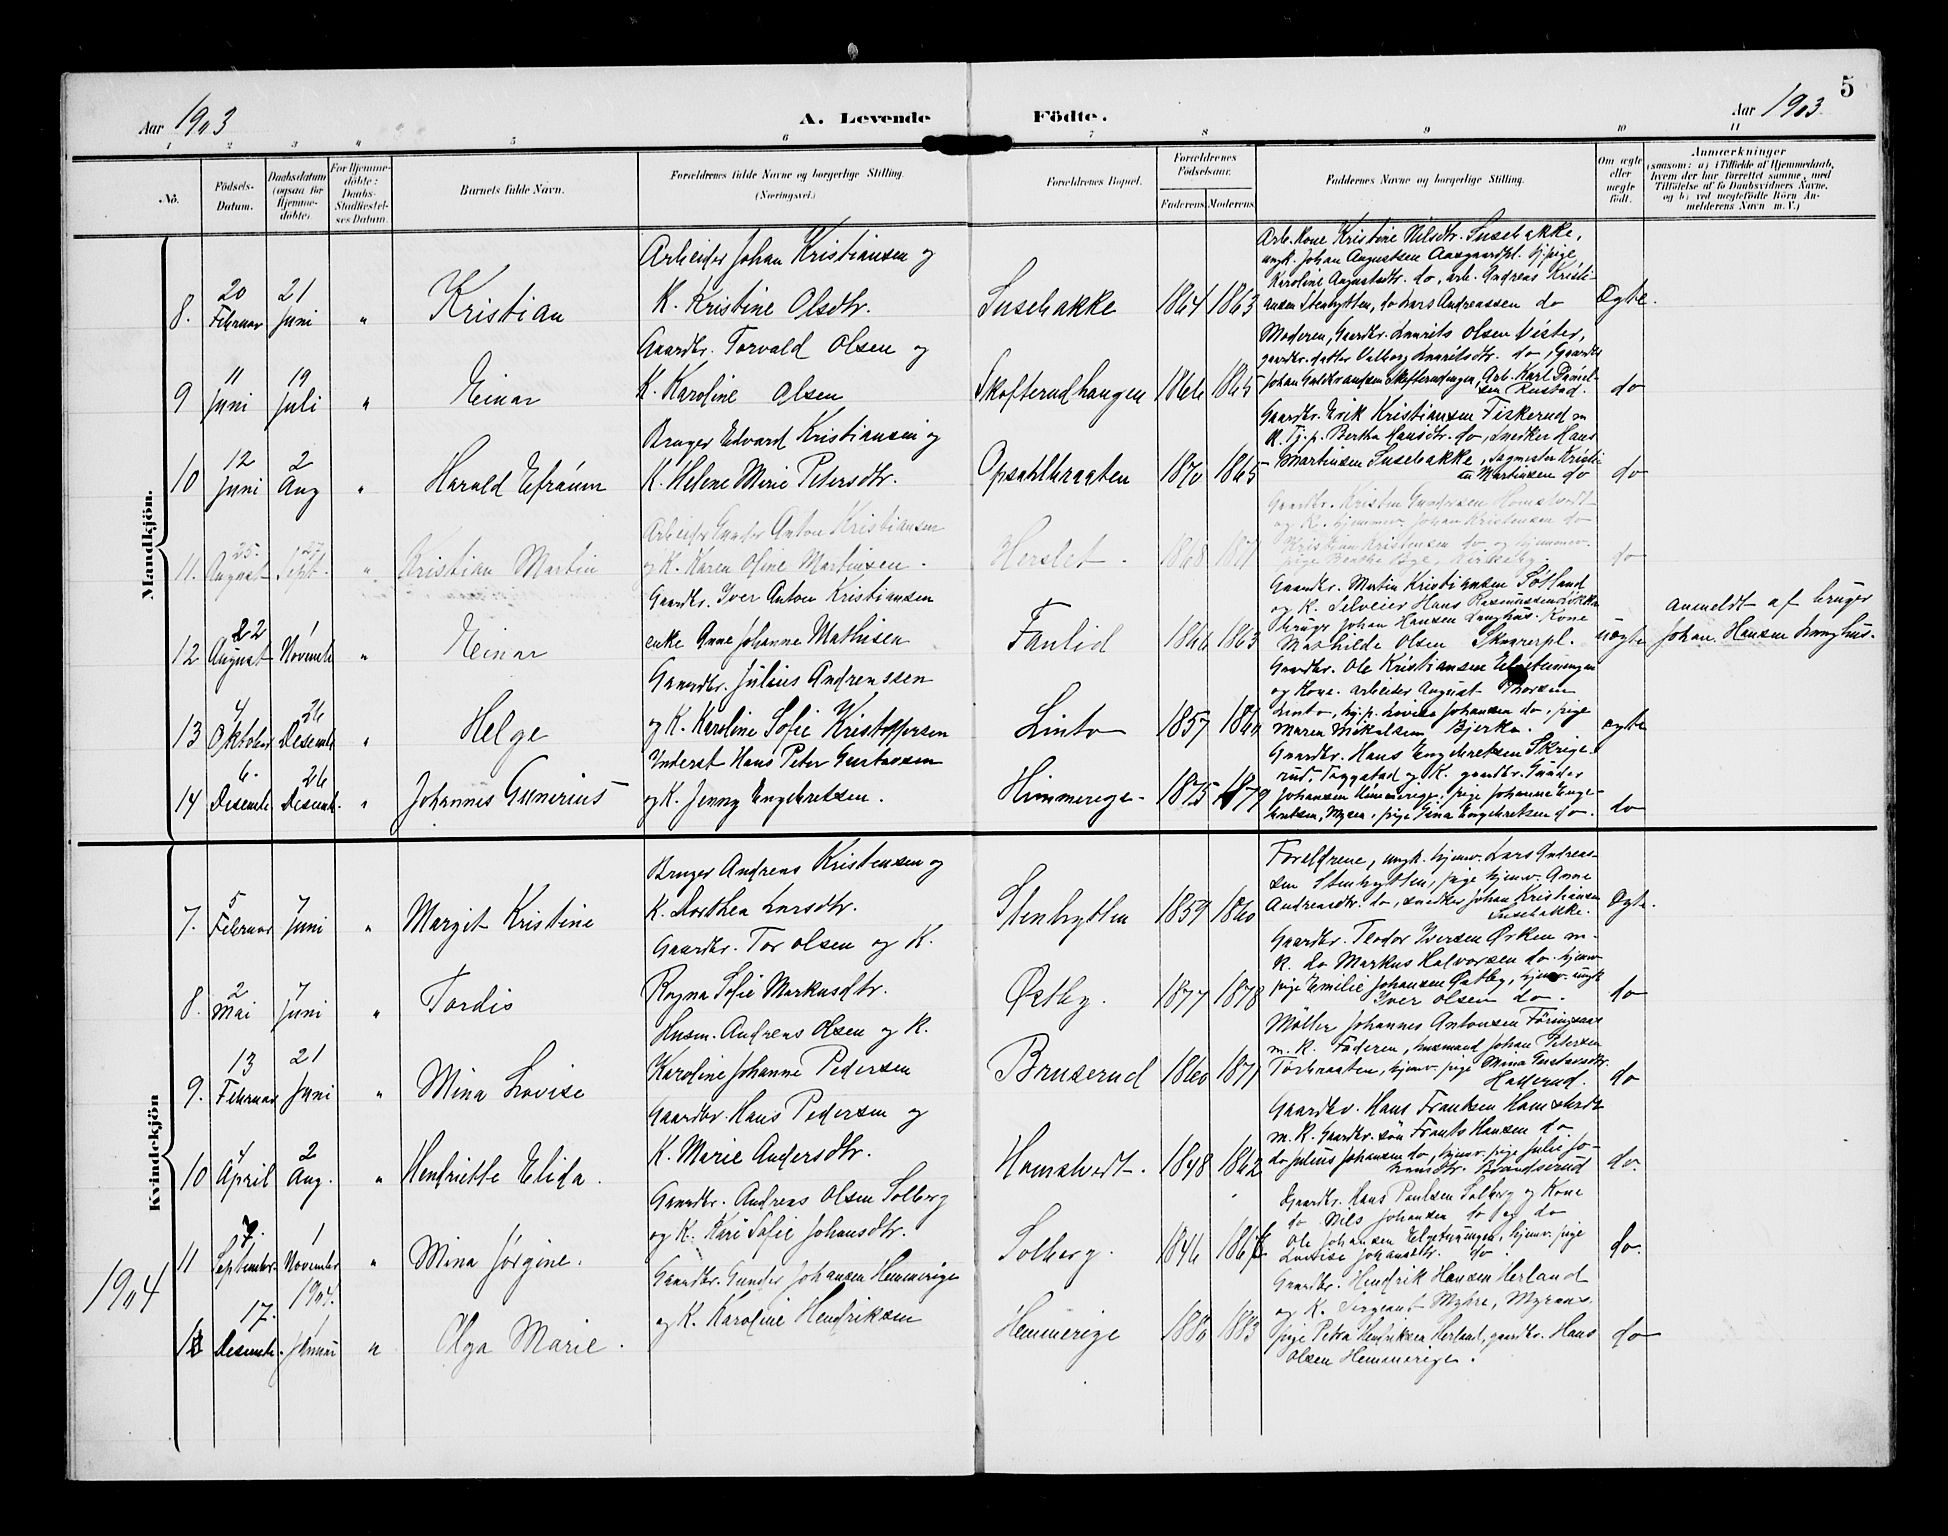 5
Aar 1903
A. Levende Födte.
Aar 1903.
1 2 3 4 5 6 7 8 9 10 11
No.
Födsels-Datum.
Daabsdatum (ogsaa for Hjemme-döbte).
For Hjemme-döbte: Daabs-Stadfæstel-ses Datum.
Barnets fulde Navn.
Forældrenes fulde Navne og borgerlige Stilling. (Næringsvei.)
Forældrenes Bopæl.
Forældrenes Födselsaar.
Faderens. Moderens.
Faddernes Navne og borgerlige Stilling.
Om ægte eller uægte födt.
Anmærkninger
(saasom: a) i Tilfælde af Hjemmedaab, hvem der har forrettet samme, med Tilföielse af to Daabsvidners Navne, og b) ved uægtefödte Börn An-melderens Navn m. V.)
Mandkjön.
8. 20 Februar 21 Juni " Kristian
Arbeider Johan Kristiansen og
K. Kristine Olsdtr.
Susebakke 1864 1863
Arb. Kone Kristine Nilsdtr. Susebakke,
ungk. Johan Augustsen Aasgaardpl. hj. pige
Karoline Augustsdtr. do, arb. Andreas Kristi-
ansen Stenhytten, do Lars Andreassen do
Ægte.
9 11 Juni 19 Juli " Einar
Gaardbr. Torvald Olsen og
K. Karoline Olsen
Skofterudhaugen 1866 1865
Moderen, Gaardbr. Laurits Olsen Vister,
gaardbr. datter Valborg Lauritsdtr. do, Gaardbr
Johan Arb. Karl Daniel-
sen Rustad.
do
10 12 Juni 2 Aug " Harald Efraim
Bruger Edvard Kristiansen og
K. Helene Mine Petersdtr.
Opsahlbraaten 1870 1865
Gaardbr. Erik Kristiansen Fiskerud m
K. Tj. p. Bertha Hansdtr. do, Snedker Hans
Martinsen Susebakke, Sagmester Kristi-
an Martinsen do
do
11. 25. August 27 Sept. " Kristian Martin
Arbeider Gunder Anton Kristiansen
og K. Karen Oline Martinsen.
Herslet. 1868 1871
Gaardbr. Kristen Gundersen Homstvedt
og K. hjemmev. Johan Kristensen do
Kristian Kristensen do og hjemmev.
pige Kirkeby.
do
12 22 August 1 Novemb " Einar
Gaardbr. Iver Anton Kristiansen
enke Anne Johanne Mathisen
Faulid 1866 1863
Gaardbr. Martin Kristiansen Sötland
og K. Selveier Hans Rasmussen
bruger Johan Hansen Langhus. Kone
Mathilde Olsen
uægte
anmeldt af bruger
Johan Hansen Langhus.
13 4 Oktober 26 Desemb " Helge
Gaardbr. Julius Andreassen
og K. Karoline Sofie Kristoffersen
Linto 1857 1860
Gaardbr. Ole Kristiansen Elgetunngen
og Kone. arbeider August Thorsen
Linto, hj. p. Lovise Johansen do, pige
Maren Mikalsen Bjerka.
ægte
14 6. Desemb 26 Desemb. " Johannes Gunerius
Inderst Hans Peter Gustavsen
og K. Jenny Engebretsen.
Himmerige 1875 1879
Gaardbr. Hans Engebretsen Skrige-
rud, Toggstad og K. gaardbr. Gunder
Johansen Himmerige, pige Johanne Enge-
bretsen, Mysen, pige Gina Engebretsen do.
do
Kvindekjön
7. 5 Februar 7 Juni " Margit Kristine
Bruger Andreas Kristensen og
K. Dorthea Larsdtr.
Stenhytten 1859 1860
Foreldrene, ungk. hjemv. Lars Andreas-
sen Stenhytten, pige hjemv. Anne
Andreasdtr. do, snedker Johan Kristiansen
Susebakke.
Ægte.
8. 2 Mai 7 Juni " Tordis
Gaardbr. Tor Olsen og K.
Ragna Sofie Markusdtr.
Østby. 1877 1878
Gaardbr. Teodor Iversen Ørken m.
K. do Markus Halvorsen do. hjemv.
pige Emilie Johansen Østby, hjemv. ungk
Iver Olsen do.
do
9. 13 Februar 21 Juni " Mina Lovise
Husm. Andreas Olsen og K.
Karoline Johanne Pedersen
Bruserud 1860 1871
Möller Johannes Antonsen
m. K. Faderen, husmand Johan Petersen
Torbraaten, hjemv. pige Mina Gustavsdtr.
Haserud.
do
10 4 April 2 Aug. " Henriette Elida.
Gaardbr. Hans Pedersen og
K. Marie Andersdtr.
Homstvedt. 1848 1862
Gaardbr. Hans Frantsen Homstvedt
m. K. Gaardbr. sön Frants Hansen do
do Julius Johansen do, hjemv. pige Julie Jo-
hansdtr. Brandsrud
do.
11 7. September 1 November " Mina Jörgine.
Gaardbr. Andreas Olsen Solberg
og K. Kari Sofie Johansdtr.
Solberg. 1846 1867
Gaardbr. Hans Paulsen Solberg og Kone
do Nils Johansen do og do
Ole Johansen Elgetunngen, hjemv. pige
Lovise Johansdtr. do.
do.
1904
12 17. Desemb. 1904. Januar " Olga Marie.
Gaardbr. Gunder Johansen Hemmerige
og K. Karoline Hendriksen
Hemmerige 1880 1883
Gaardbr. Hendrik Hansen Herland
og K. Sergeant Myhre, Mysen.
pige Petra Hendriksen Herland, gaardbr. Hans
Olsen Hemmerige.
do